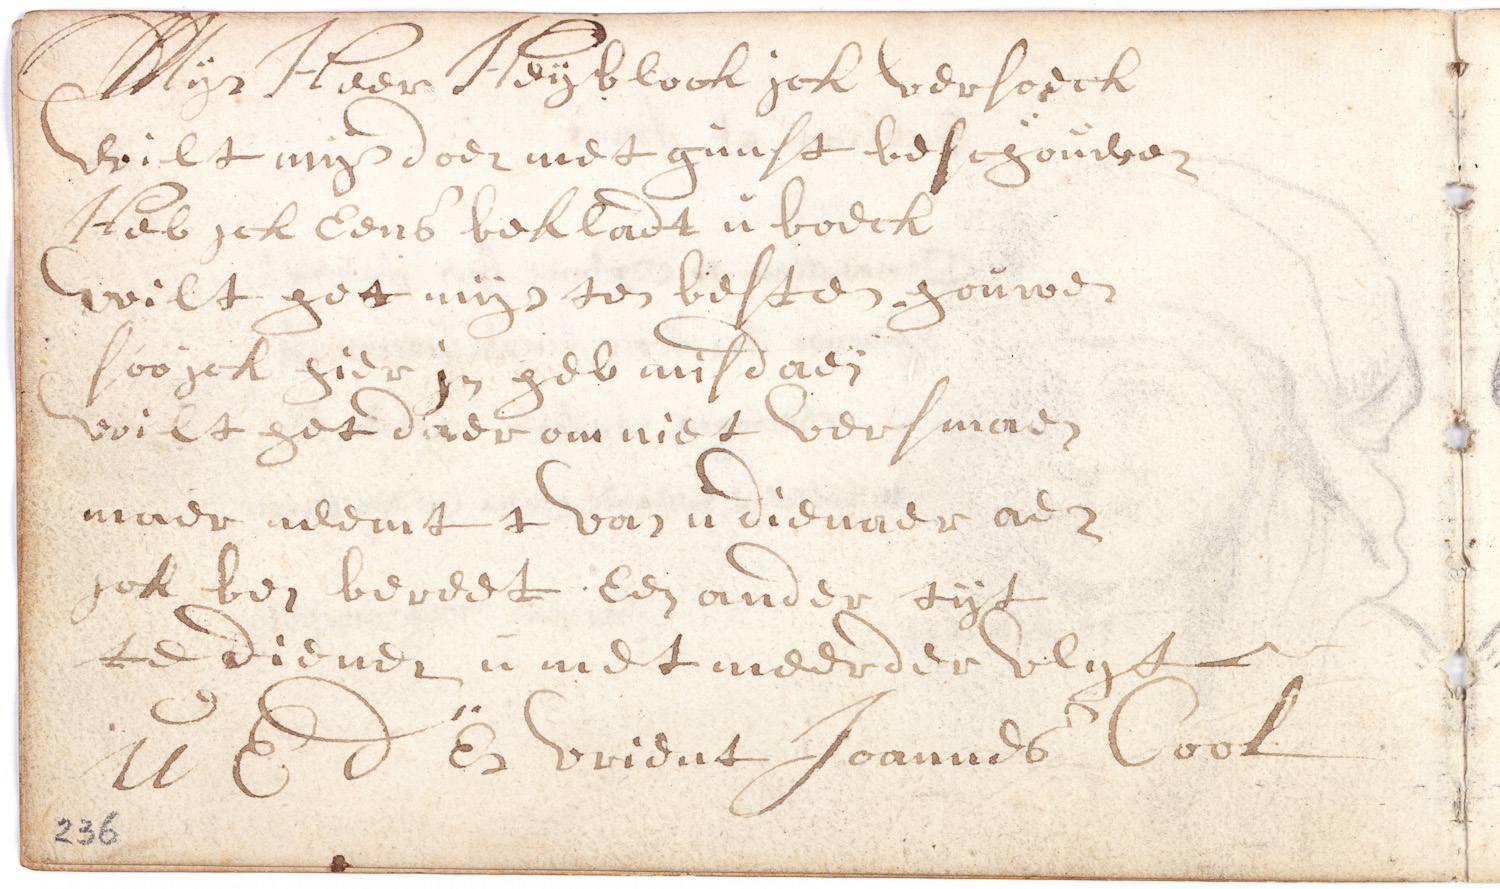 Mijn Heer Heÿblock jck versoeck
wilt mijn doen met gunst beschouwen
Heb jck Eens bekladt ü boeck
wilt het mijn ten besten houwen
soo jck hier jn heb misdaen
wilt het daerom niet versmaen
maer neemt t van ü dienaer aen
jck ben bereet Een ander tijt
te dienen ü met meerder vlyt
U E d En vrient Joannes Cool
236